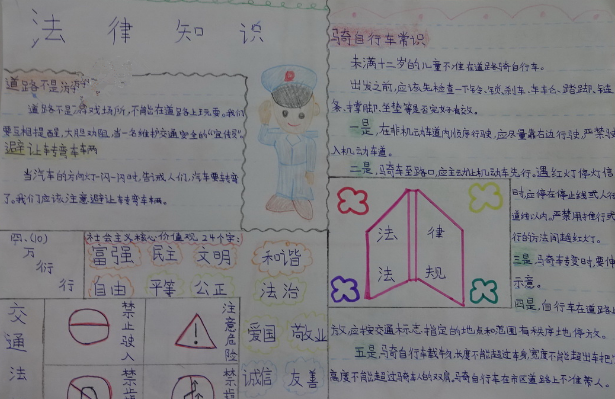 法律知识
道路不是游
道路不是游戏场所,不能在道路上玩耍。我们
要互相提醒,大胆劝阻,当一名维护交通安全的“宣传员”。
避让转弯车辆
当汽车的方向灯一闪一闪时,告诫人们,汽车要转弯
了。我们应该注意避让转弯车辆。
四、(10)
万
行
行
社会主义核心价值观24个字:
富强 民主 文明 和谐
自由 平等 公正 法治
爱国 敬业
诚信 友善
交通法
禁止驶入
注意危险
骑自行车常识
未满十二岁的儿童不准在道路骑自行车。
出发之前,应该先检查一下铃、锁、刹车、车牛台、踏脚、链
条、才掌脚、坐垫等是否完好有效。
一是,在非机动车道内顺序行驶,应尽量靠右边行驶,严禁驶
入机动车道。
二是,骑车至路口,应主动让机动车先行。遇红灯停灯信
时,应停在停止线或人行
道线以内。严禁用推行或
行的方法闯越红灯。
三是,骑车转弯时,要伸
示意。
四是,自行车在道路上
放,应按交通标志指定的地点和范围有秩序地停放。
五是,骑自行车载物,长度不能超过车身,宽度不能超出车把
高度不能超过骑车人的双肩。骑自行车在市区道路上不准带人。
法律
法规